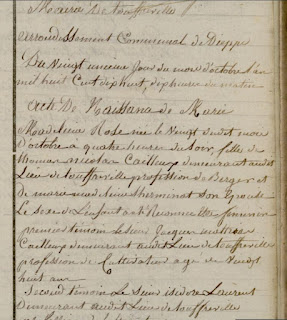 Mairie de touffreville
arrondissement Communal de Dieppe
Du Vingt unieme Jour du mois d'octobre L'an
mil huit Cent dix huit, dix heures du matin
acte De Naissance de Marie
Madeleine Rose née le Vingt dudit mois
D'octobre a quatre heures du soir, fille de
thomas nicolas Cailleux demeurant audit
Lieu de touffreville profession de Berger et
de marie madeleine sherminot son Epouse
Le sexe de L'enfant a été Reconnu Etre feminin
premier temoin Le sieur Jacques
Cailleux demeurant audit Lieu de touffreville
profession de Cultivateur agé de Vingt
huit ans
second temoin Le sieur isidore Laurent
Demeurant audit Lieu de touffreville